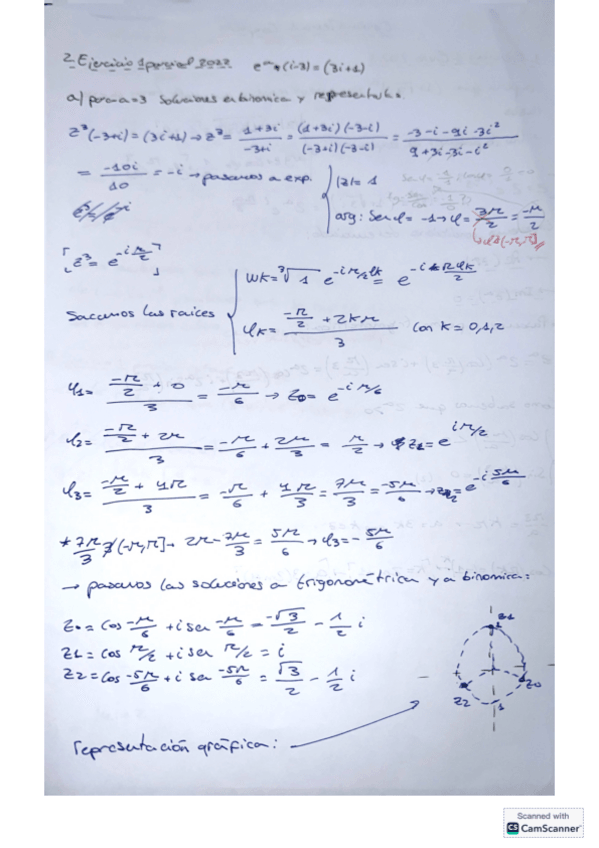 2 Ejercicio 1 parcial 2022 (i-3) = (3i+1)
a) para a=3 soluciones en binomica y
z³(-3+i) = (3i+1) → z³ = \frac{1+3i}{-3+i} = \frac{(1+3i)(-3-i)}{(-3+i)(-3-i)} = \frac{-3-i-9i-3i²}{9+3i-3i-i²}
= \frac{-10i}{10} = -i → pasamos a exp. |z| = 1
arg: sen φ = -1 → φ = \frac{3π}{2} = \frac{-π}{2}
[z³ = e^{-iπ/2}]
Sacamos las raíces
φk = \frac{\frac{-π}{2} + 2kπ}{3} con k = 0,1,2
φ1 = \frac{\frac{-π}{2} + 0}{3} = \frac{-π}{6} → z0 = e^{-iπ/6}
φ2 = \frac{\frac{-π}{2} + 2π}{3} = \frac{-π}{6} + \frac{2π}{3} = \frac{π}{2} → z1 = e^{iπ/2}
φ3 = \frac{\frac{-π}{2} + 4π}{3} = \frac{-π}{6} + \frac{4π}{3} = \frac{7π}{3} = \frac{-5π}{6} → z2 = e^{-i\frac{5π}{6}}
* \frac{7π}{3} ∉ (-π,π] → 2π - \frac{7π}{3} = \frac{5π}{6} → φ3 = -\frac{5π}{6}
→ pasamos las soluciones a trigonométrica y a binomica:
z0 = cos \frac{-π}{6} + i sen \frac{-π}{6} = \frac{-√3}{2} - \frac{1}{2} i
z1 = cos π/2 + i sen π/2 = i
z2 = cos \frac{-5π}{6} + i sen \frac{-5π}{6} = \frac{√3}{2} - \frac{1}{2} i
z1
z0
z2
representación gráfica:
Scanned with
CS CamScanner